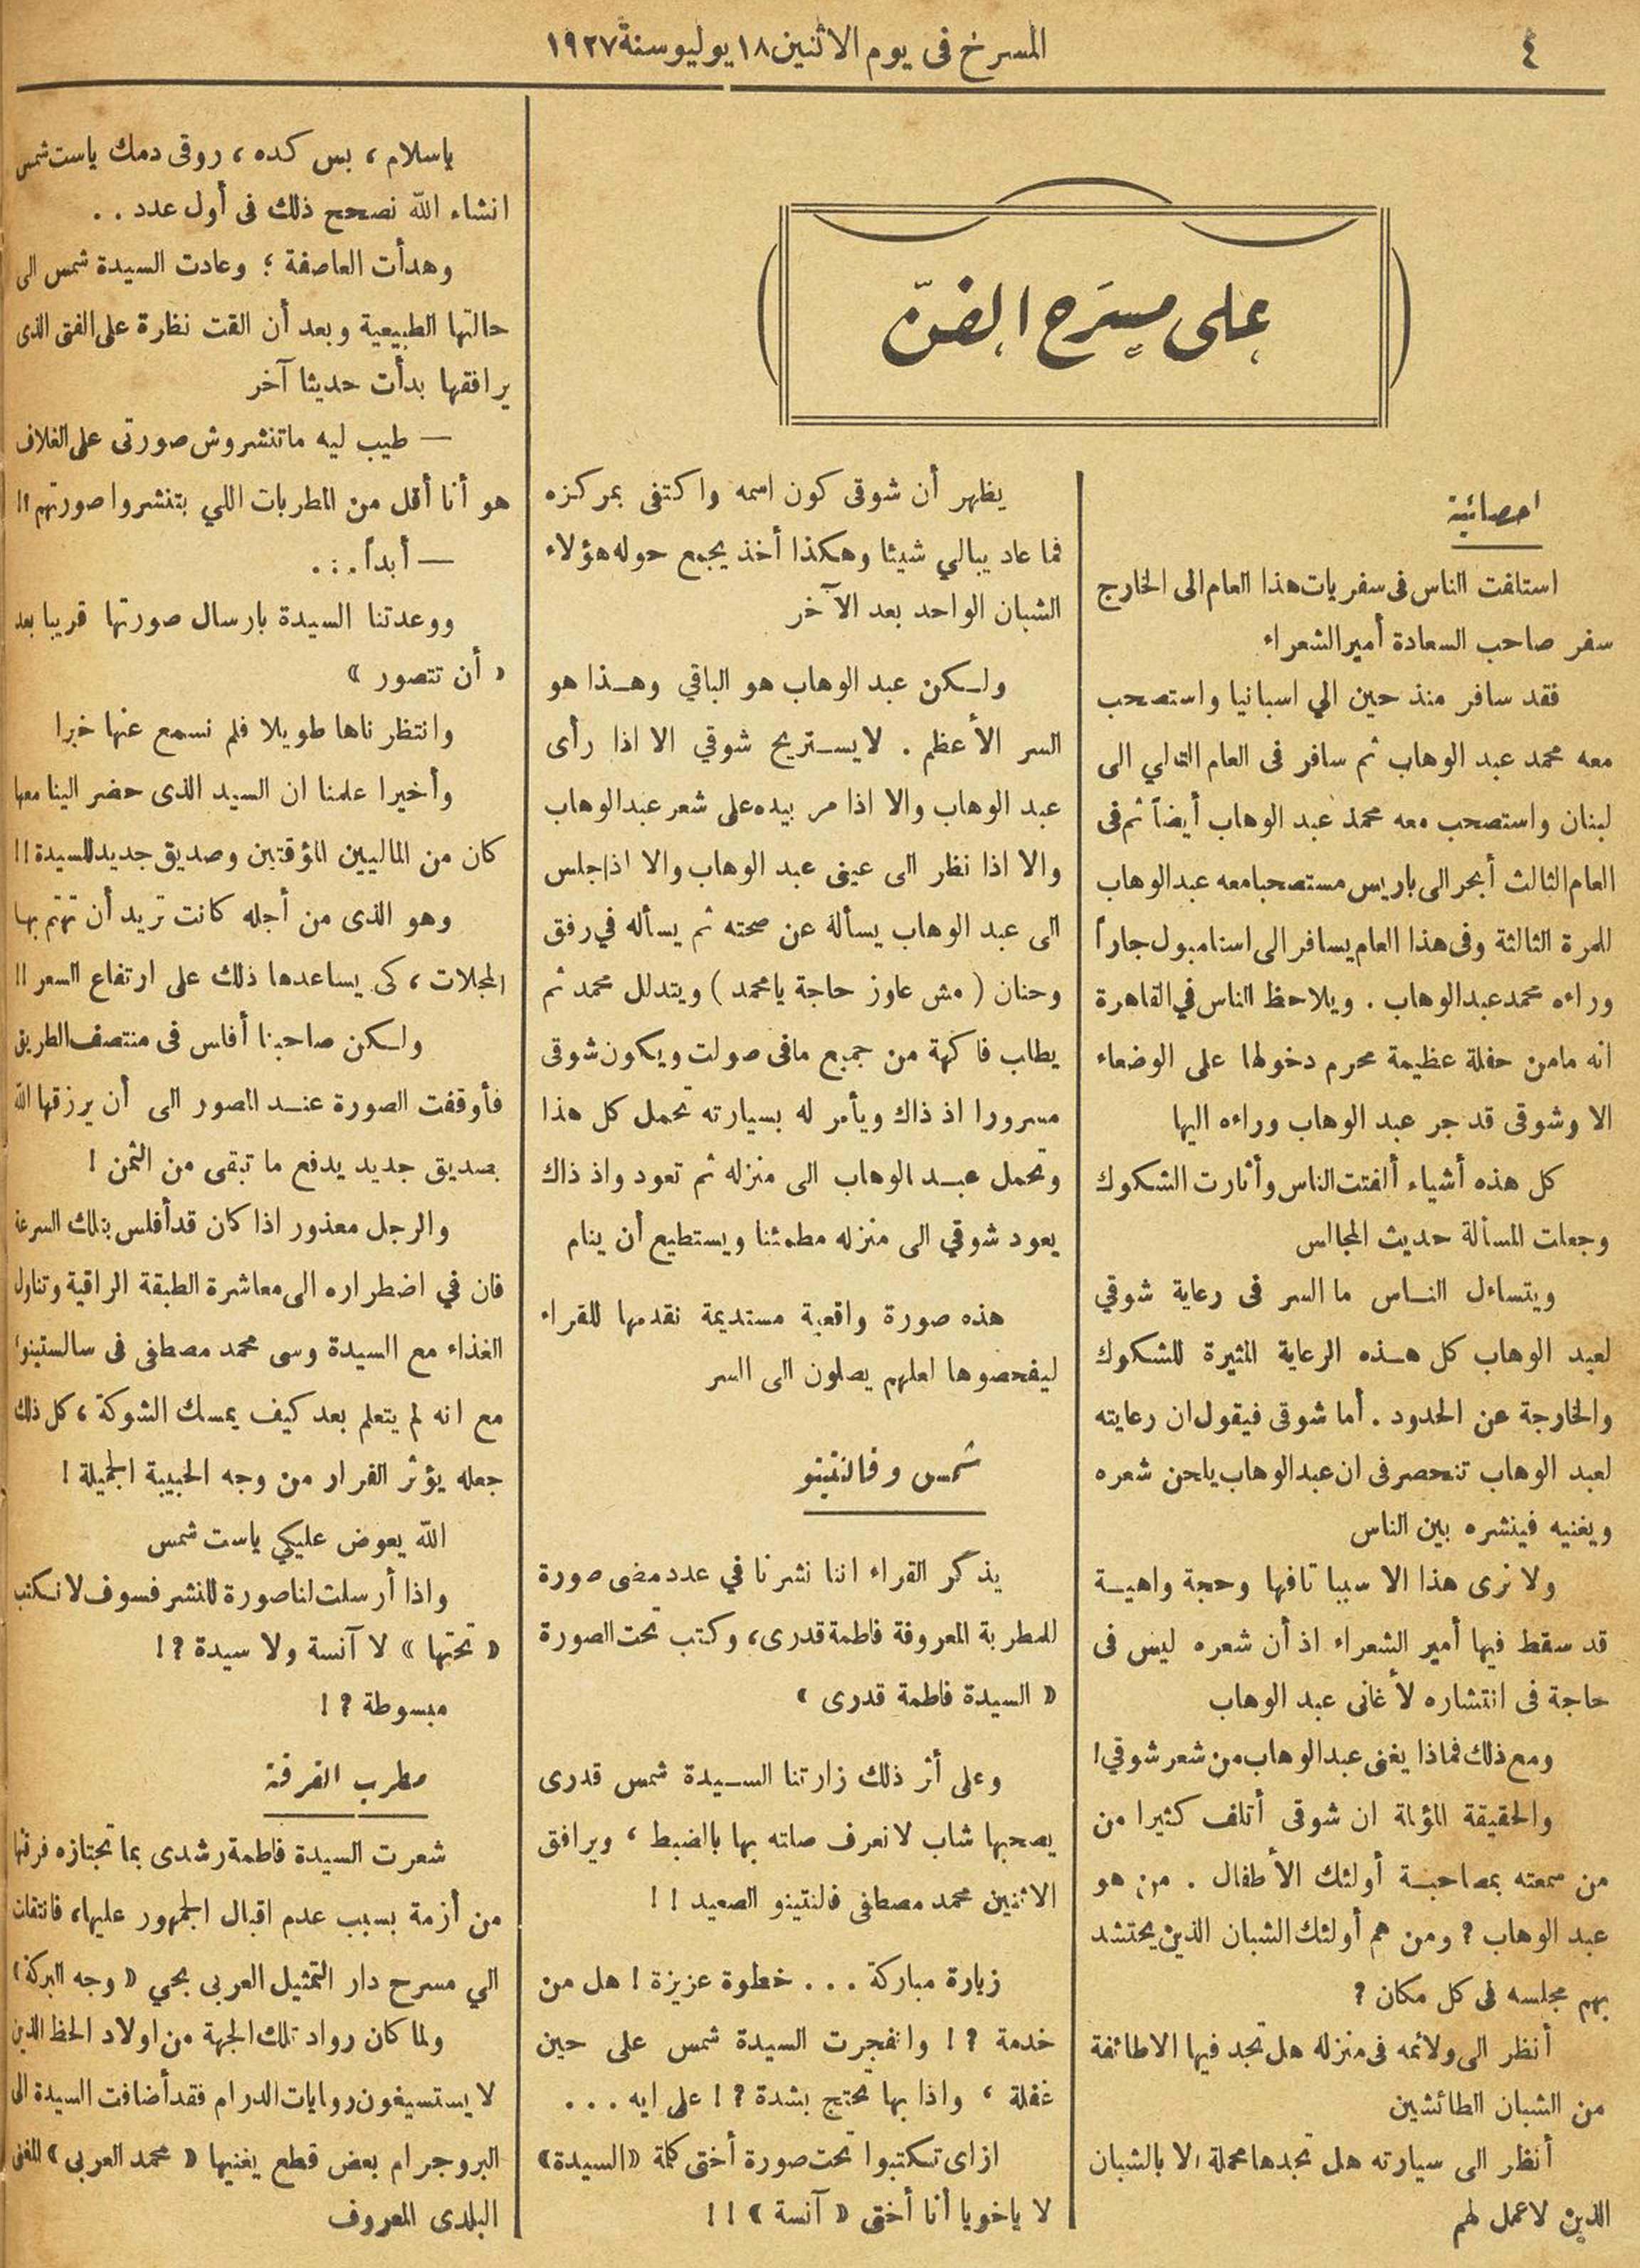 ٤
المسرح فى يوم الاثنين ١٨ يوليو سنة ١٩٢٧
على مسرح الفن
احصائية
استلفت الناس فى سفريات هذا العام الى الخارج
سفر صاحب السعادة أمير الشعراء
فقد سافر منذ حين الي اسبانيا واستصحب
معه محمد عبد الوهاب ثم سافر فى العام التالي الى
لبنان واستصحب معه محمد عبد الوهاب أيضاً ثم فى
العام الثالث أبحر الى باريس مستصحبا معه عبد الوهاب
للمرة الثالثة وفى هذا العام يسافر الى استامبول جاراً
وراءه محمد عبد الوهاب . ويلاحظ الناس في القاهرة
انه مامن حفلة عظيمة محرم دخولها على الوضعاء
الا وشوقى قد جر عبد الوهاب وراءه اليها
كل هذه أشياء ألفتت الناس وأثارت الشكوك
وجعلت المسألة حديث المجالس
ويتساءل الناس ما السر فى رعاية شوقي
لعبد الوهاب كل هذه الرعاية المثيرة للشكوك
والخارجة عن الحدود . أما شوقى فيقول ان رعايته
لعبد الوهاب تنحصر فى ان عبد الوهاب يلحن شعره
ويغنيه فينشره بين الناس
ولا نرى هذا الا سببا تافها وحجة واهية
قد سقط فيها أمير الشعراء اذ أن شعره ليس فى
حاجة فى انتشاره لأغانى عبد الوهاب
ومع ذلك فماذا يغنى عبد الوهاب من شعر شوقي !
والحقيقة المؤلمة ان شوقى أتلف كثيرا من
من سمعته بمصاحبة أولئك الأطفال . من هو
عبد الوهاب ? ومن هم أولئك الشبان الذين يحتشد
بهم مجلسه فى كل مكان ?
أنظر الى ولائمه فى منزله هل تجد فيها الا طائفة
من الشبان الطائشين
أنظر الى سيارته هل تجدها محملة الا بالشبان
الذين لا عمل لهم
يظهر أن شوقى كون اسمه واكتفى بمركزه
فما عاد يبالي شيئا وهكذا أخذ يجمع حوله هؤلاء
الشبان الواحد بعد الآخر
ولكن عبد الوهاب هو الباقي وهذا هو
السر الأعظم . لا يستريح شوقي الا اذا رأى
عبد الوهاب والا اذا مر بيده على شعر عبد الوهاب
والا اذا نظر الى عينى عبد الوهاب والا اذا جلس
الى عبد الوهاب يسألة عن صحته ثم يسأله في رفق
وحنان ( مش عاوز حاجة يا محمد ) ويتدلل محمد ثم
يطلب فاكهة من جميع مافى صولت ويكون شوقى
مسرورا اذ ذاك ويأمر له بسيارته تحمل كل هذا
وتحمل عبد الوهاب الى منزله ثم تعود واذ ذاك
يعود شوقي الى منزله مطمئنا ويستطيع أن ينام
هذه صورة واقعية مستديمة نقدمها للقراء
ليفحصوها لعلهم يصلون الى السر
شمس وفالنتينو
يذكر القراء اننا نشرنا في عدد مضى صورة
للمطربة المعروفة فاطمة قدرى، وكتب تحت الصورة
« السيدة فاطمة قدرى »
وعلى أثر ذلك زارتنا السيدة شمس قدرى
يصحبها شاب لا نعرف صلته بها بالضبط ، ويرافق
الاثنين محمد مصطفى فالنتينو الصعيد ! !
زيارة مباركة . . . خطوة عزيزة ! هل من
خدمة ? ! وانفجرت السيدة شمس على حين
غفلة ، واذا بها تحتج بشدة ? ! على ايه . . .
ازاى تكتبوا تحت صورة أختى كلمة «السيدة»
لا ياخويا أنا أختى « آنسة » ! !
ياسلام ، بس كده ، روقى دمك ياست شمس
انشاء الله نصحح ذلك فى أول عدد . .
وهدأت العاصفة ؛ وعادت السيدة شمس الى
حالتها الطبيعية وبعد أن القت نظارة على الفتى الذى
يرافقها بدأت حديثا آخر
— طيب ليه ماتنشروش صورتى على الغلاف
هو أنا أقل من المطربات اللي بتنشروا صورتهم !!
— أبداً . . .
ووعدتنا السيدة بارسال صورتها قريبا بعد
« أن تتصور »
وانتظرناها طويلا فلم نسمع عنها خبرا
وأخيرا علمنا ان السيد الذى حضر الينا معها
كان من الماليين المؤقتين وصديق جديد للسيدة !!
وهو الذى من أجله كانت تريد أن تهتم بها
المجلات ، كى يساعدها ذلك على ارتفاع السعر !!
ولكن صاحبنا أفلس فى منتصف الطريق
فأوقفت الصورة عند المصور الى أن يرزقها الله
بصديق جديد يدفع ما تبقى من الثمن !
والرجل معذور اذا كان قد أفلس بتلك السرعة
فان في اضطراره الى معاشرة الطبقة الراقية وتناول
الغذاء مع السيدة وسى محمد مصطفى فى سالستينو،
مع انه لم يتعلم بعد كيف يمسك الشوكة ، كل ذلك
جعله يؤثر الفرار من وجه الحبيبة الجميلة !
الله يعوض عليكي ياست شمس
واذا أرسلت لنا صورة للنشر فسوف لا نكتب
« تحتها » لا آنسة ولا سيدة ? !
مبسوطة ? !
مطرب الفرقة
شعرت السيدة فاطمة رشدى بما تجتازه فرقتها
من أزمة بسبب عدم اقبال الجمهور عليها، فانتقلت
الي مسرح دار التمثيل العربى بحي « وجه البركة »
ولما كان رواد تلك الجهة من اولاد الحظ الذين
لا يستسيغون روايات الدرام فقد أضافت السيدة الى
البروجرام بعض قطع يغنيها « محمد العربى » المغنى
البلدى المعروف